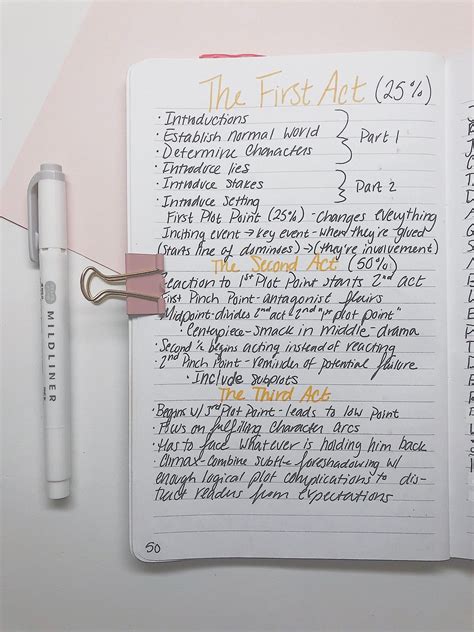 The First Act (25%)
• Introductions
• Establish normal world
• Determine Characters
Part 1
• Introduce lies
• Introduce stakes
• Introduce setting
Part 2
First Plot Point (25%) - changes everything
Inciting event → key event - where they're glued
(Starts line of dominoes) → (they're involvement)
The Second Act (50%)
Reaction to 1st Plot Point starts 2nd act
First Pinch Point - antagonist flairs
Midpoint - divides 2nd act 2nd "plot point"
• Centerpiece - smack in middle - drama
• Second ½ begins acting instead of reacting
• 2nd Pinch Point - reminder of potential failure
• Include subplots
The Third Act
• Begins w/ 3rd Plot Point - leads to low point
• Focus on fulfilling character arcs
• Has to face whatever is holding him back
• Climax - combine subtle foreshadowing w/
enough logical plot complications to dis-
tract readers from expectations
50
MILDLINER